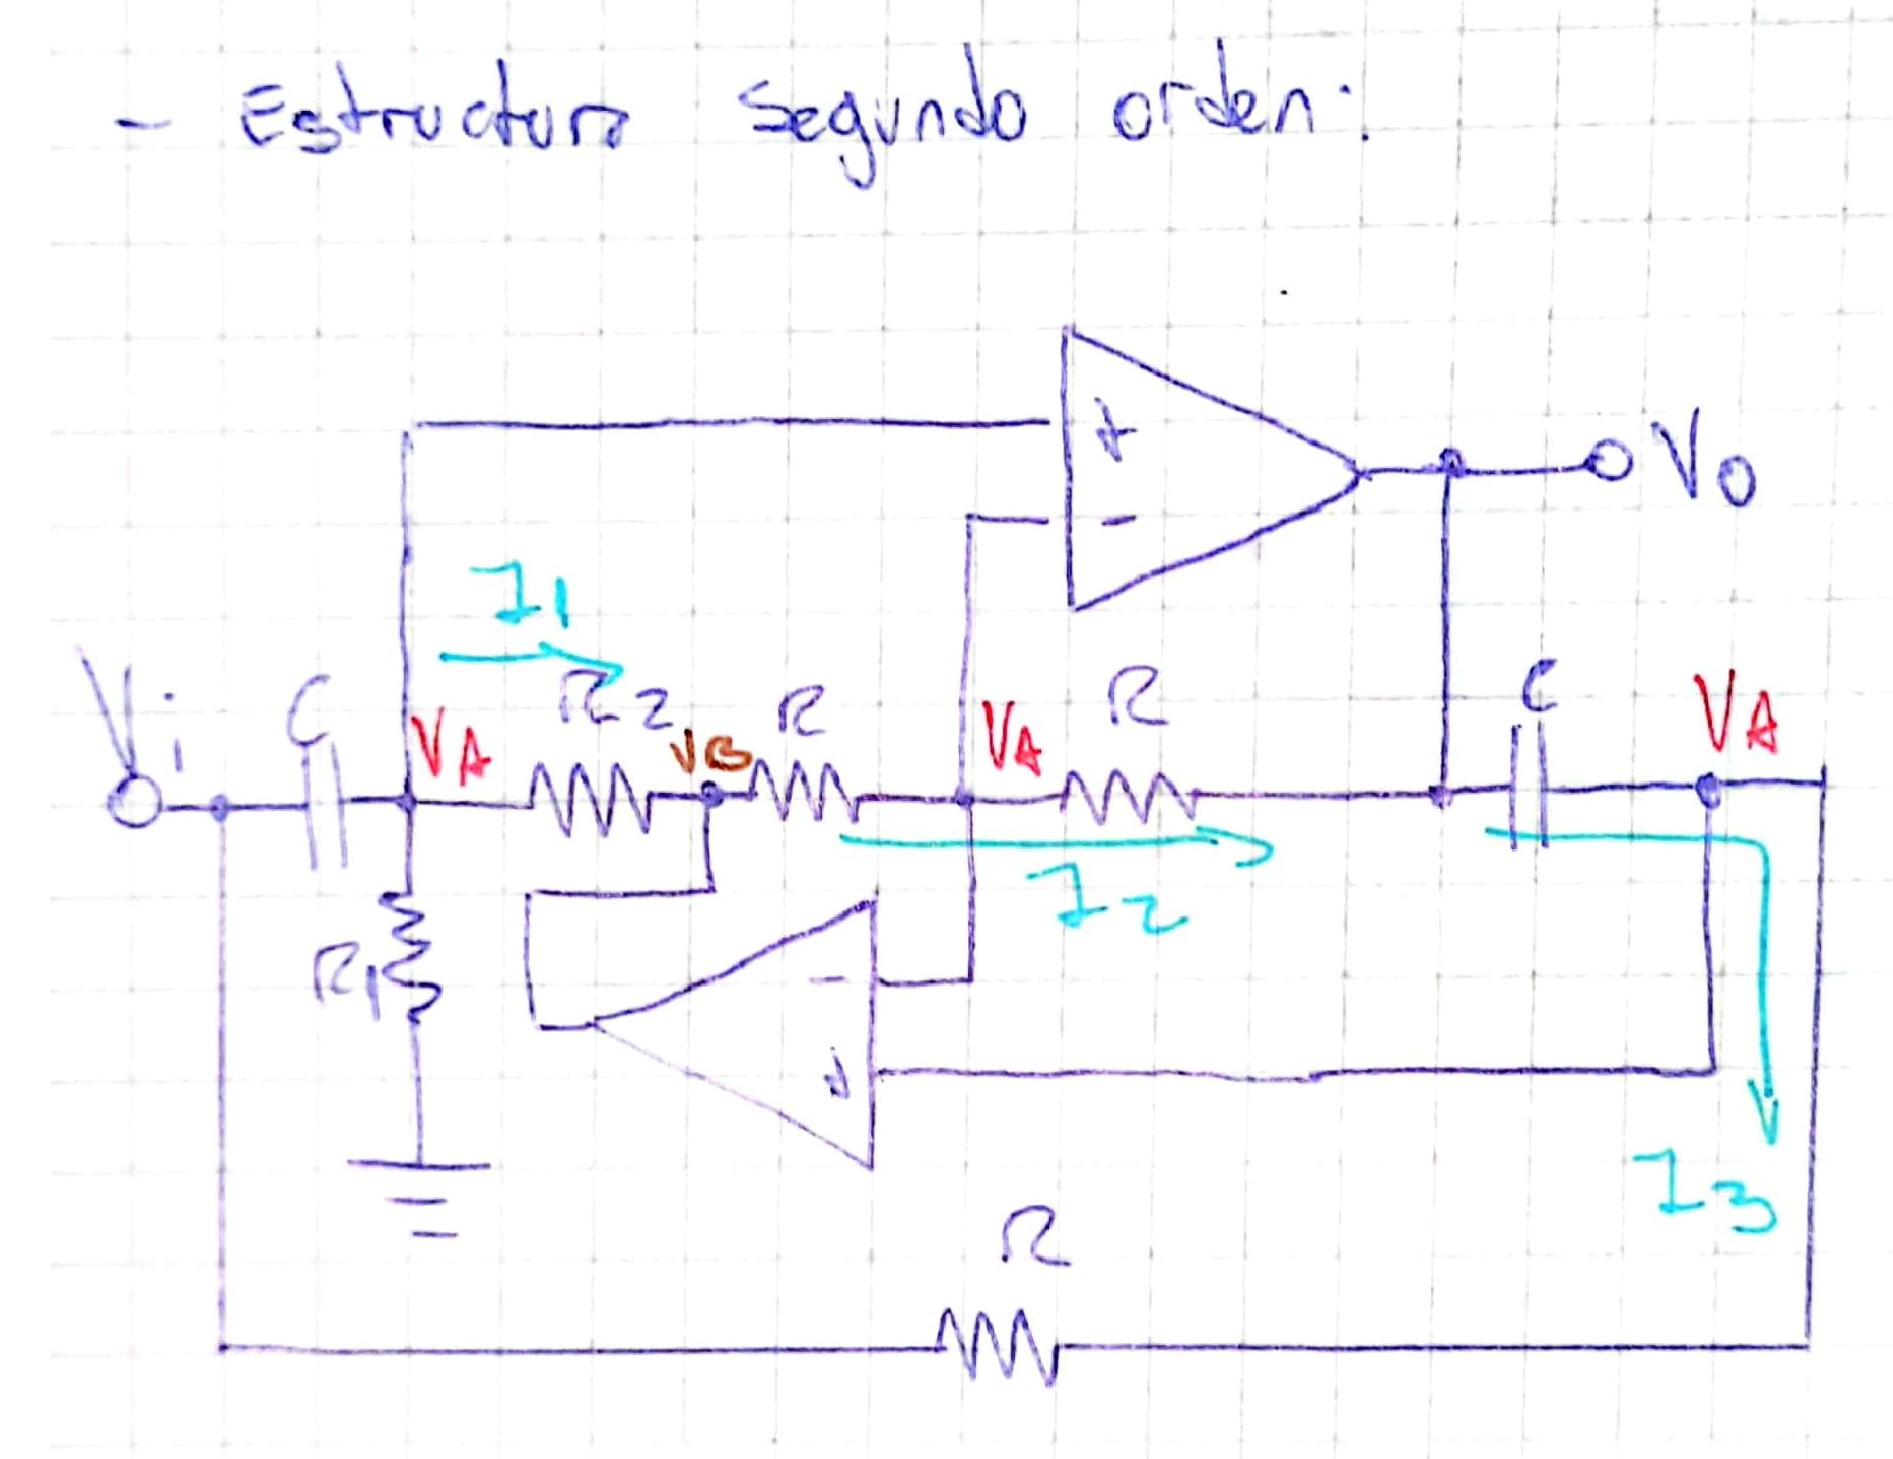 - Estructura Segundo orden:
+
-
Vo
I1
Vi
C
VA
R2
VB
R
VA
R
C
VA
I2
R1
-
+
I3
R